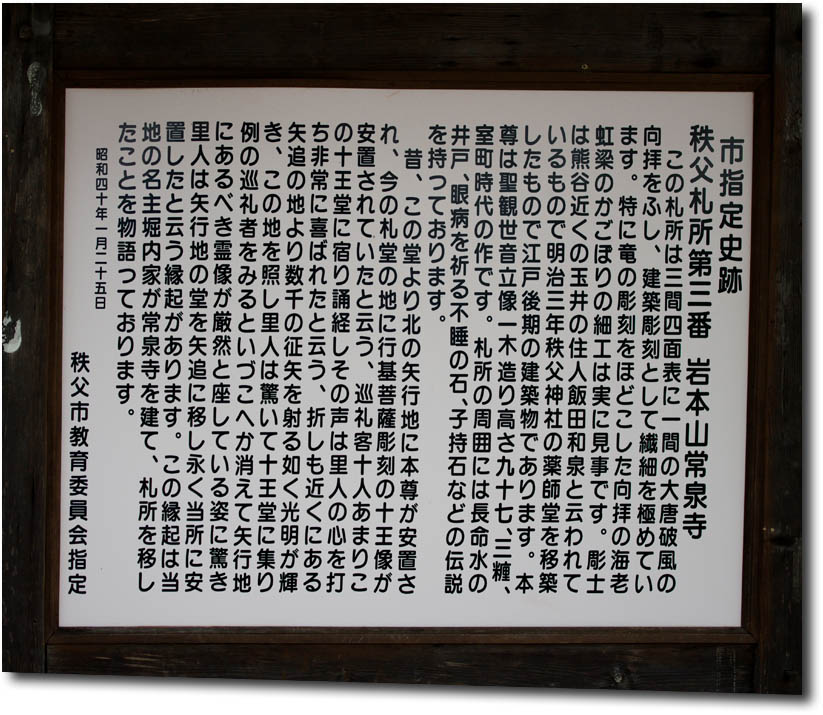 市指定史跡
秩父札所第三番 岩本山常泉寺
この札所は三間四面表に一間の大唐破風の
向拝をふし、建築彫刻として繊細を極めてい
ます。特に竜の彫刻をほどこした向拝の海老
虹梁のかごぼりの細工は実に見事です。彫士
は熊谷近くの玉井の住人飯田和泉と云われて
いるもので明治三年秩父神社の薬師堂を移築
したもので江戸後期の建築物であります。本
尊は聖観世音立像一木造り高さ九十七、三糎、
室町時代の作です。札所の周囲には長命水の
井戸、眼病を祈る不睡の石、子持石などの伝説
を持っております。
昔、この堂より北の矢行地に本尊が安置さ
れ、今の札堂の地に行基菩薩彫刻の十王像が
安置されていたと云う、巡礼客十人あまりこ
の十王堂に宿り誦経しその声は里人の心を打
ち非常に喜ばれたと云う、折しも近くにある
矢追の地より数千の征矢を射る如く光明が輝
き、この地を照し里人は驚いて十王堂に集り
例の巡礼者をみるといづこへか消えて矢行地
にあるべき霊像が厳然と座している姿に驚き
里人は矢行地の堂を矢追に移し永く当所に安
置したと云う縁起があります。この縁起は当
地の名主堀内家が常泉寺を建て、札所を移し
たことを物語っております。
昭和四十年一月二十五日
秩父市教育委員会指定